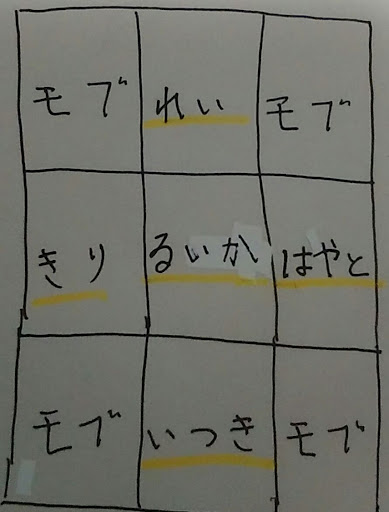 モブ れい モブ
きり るいか はやと
モブ いつき モブ